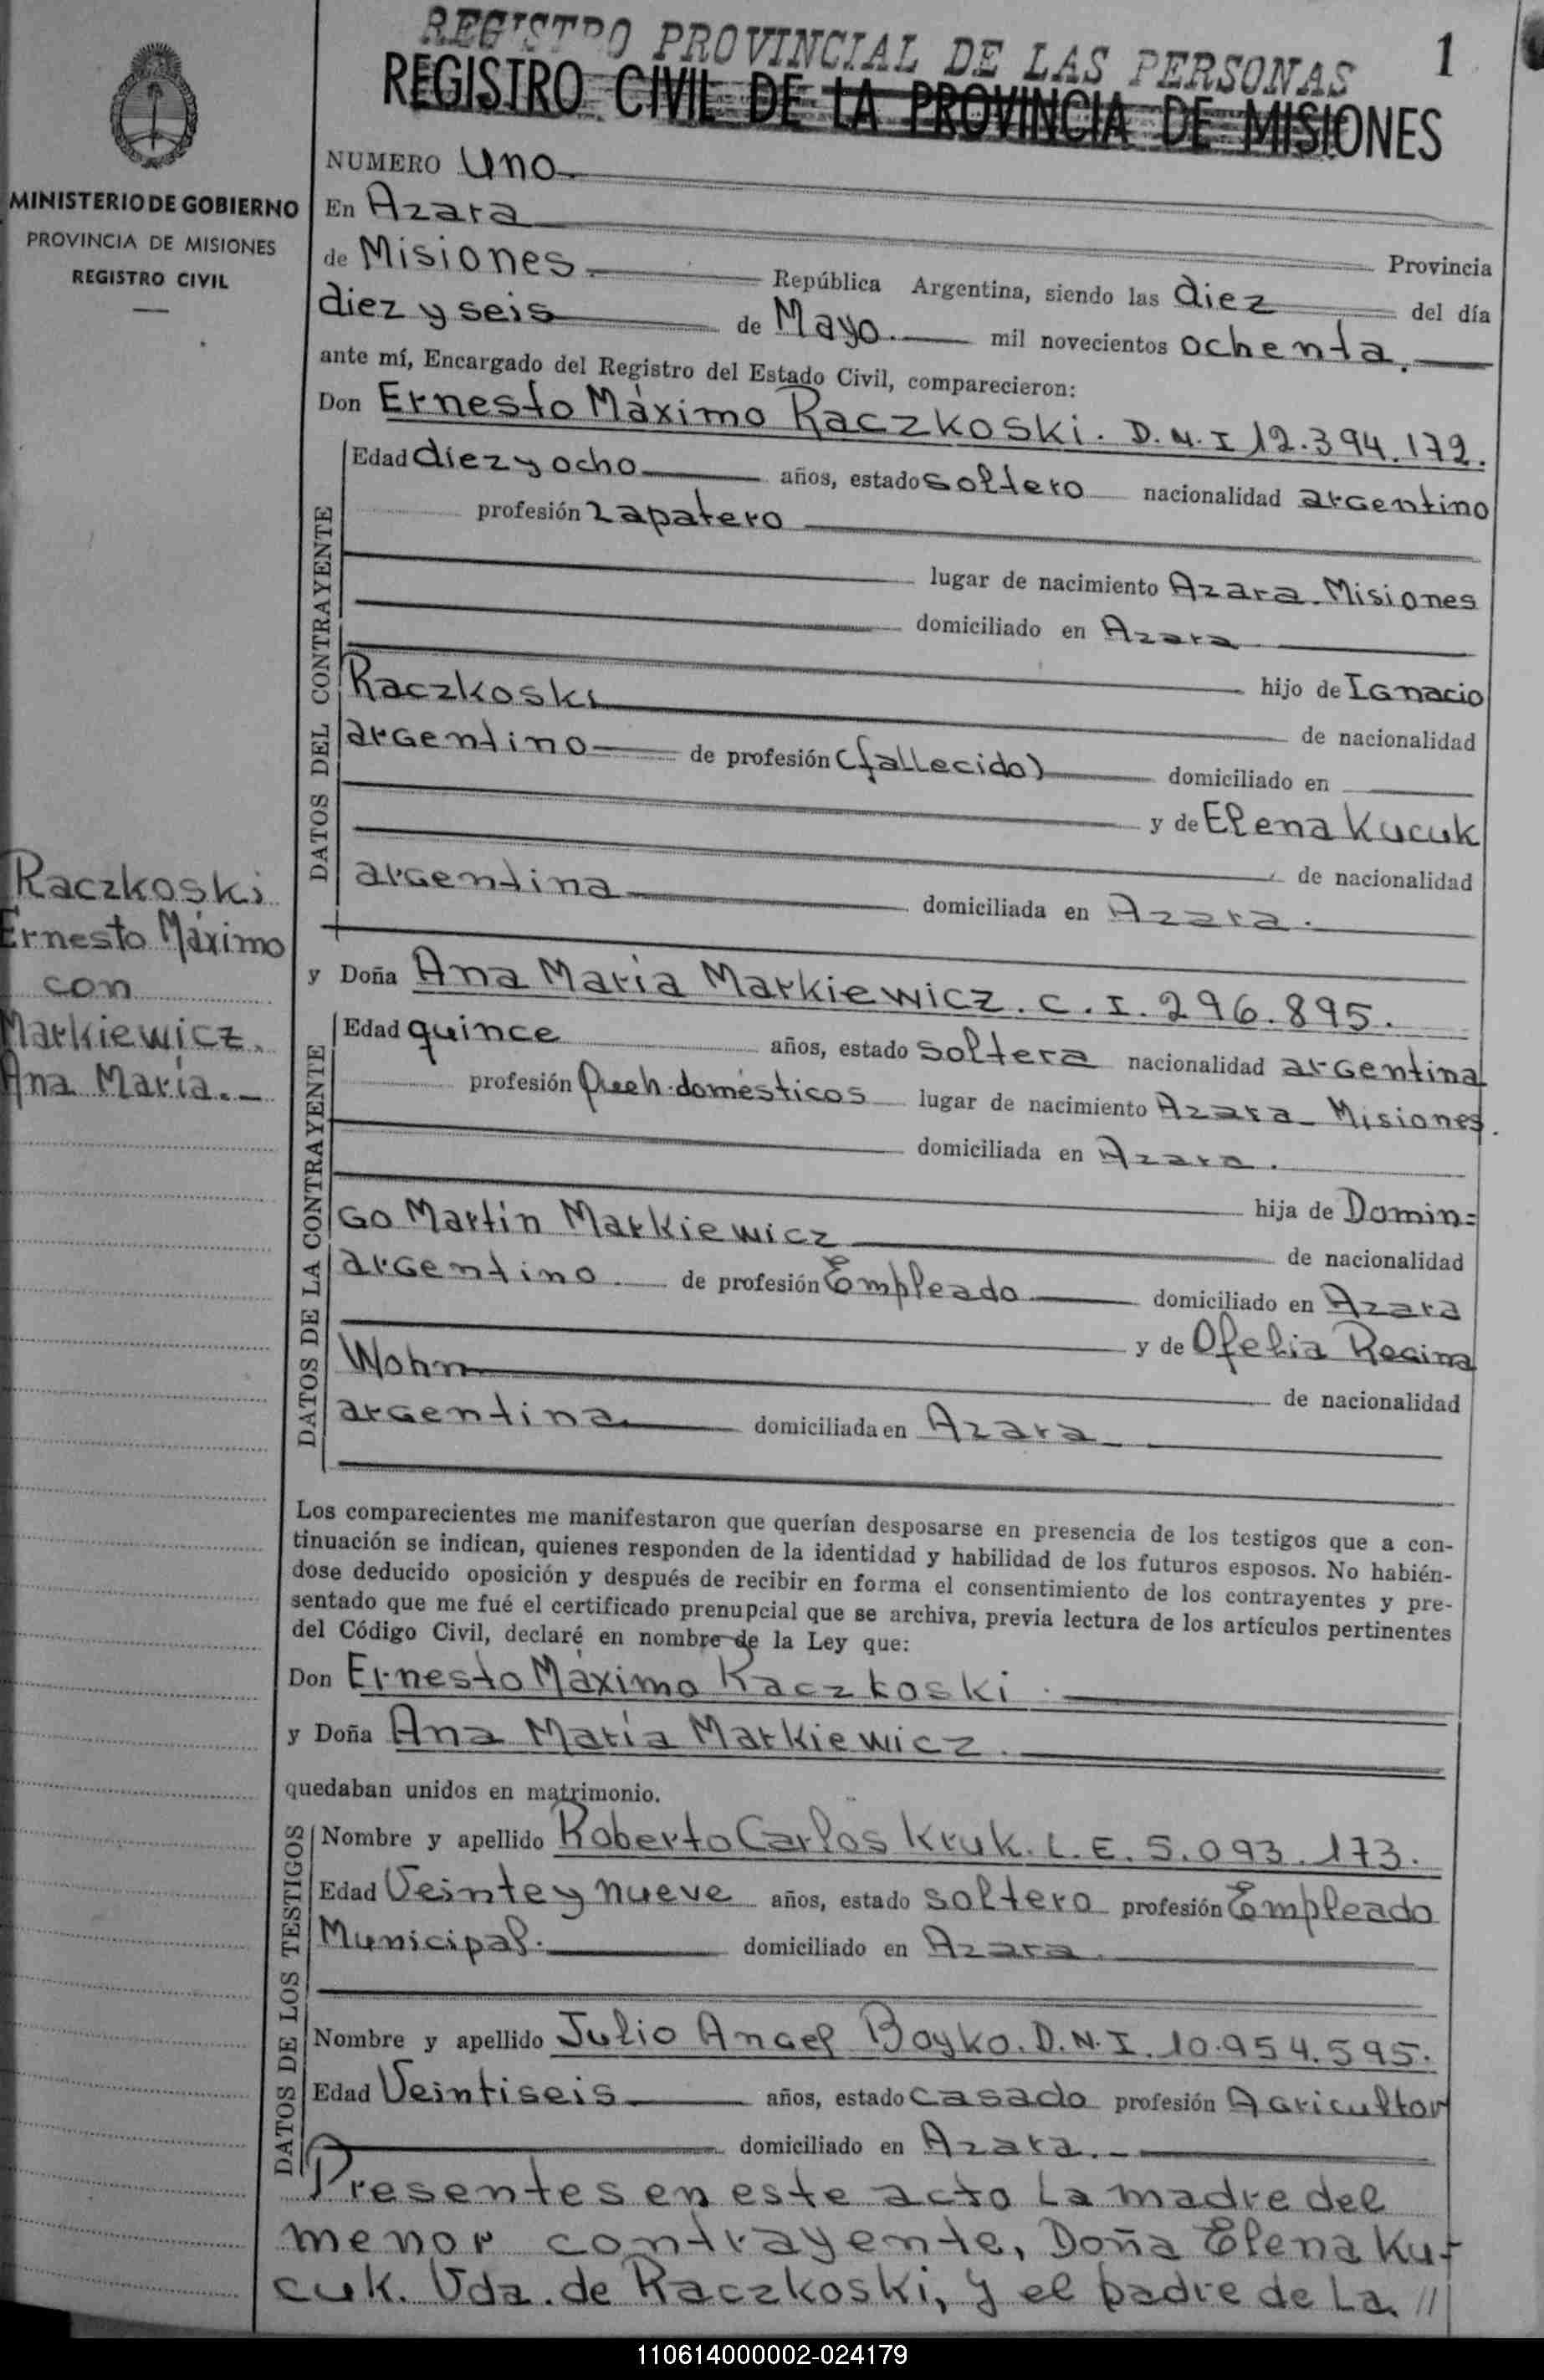 REGISTRO PROVINCIAL DE LAS PERSONAS
1
REGISTRO CIVIL DE LA PROVINCIA DE MISIONES
MINISTERIO DE GOBIERNO
PROVINCIA DE MISIONES
REGISTRO CIVIL
NUMERO Uno
En Azara Provincia
de Misiones República Argentina, siendo las diez del día
diez y seis de Mayo. mil novecientos ochenta.
ante mí, Encargado del Registro del Estado Civil, comparecieron:
Don Ernesto Máximo Raczkoski. D.N.I 12.394.172.
DATOS DEL CONTRAYENTE
Edad diez y ocho años, estado soltero nacionalidad argentino
profesión zapatero
lugar de nacimiento Azara Misiones
domiciliado en Azara
hijo de Ignacio
Raczkoski de nacionalidad
argentino de profesión (fallecido) domiciliado en
y de Elena Kucuk
de nacionalidad
argentina domiciliada en Azara.
Raczkoski
Ernesto Máximo
con
Markiewicz.
Ana María.-
y Doña Ana María Markiewicz. C.I. 296.895.
DATOS DE LA CONTRAYENTE
Edad quince años, estado soltera nacionalidad argentina
profesión Queh. domésticos lugar de nacimiento Azara Misiones.
domiciliada en Azara.
hija de Domin=
go Martín Markiewicz de nacionalidad
argentino. de profesión Empleado domiciliado en Azara
y de Ofelia Regina
Wohn de nacionalidad
argentina domiciliada en Azara
Los comparecientes me manifestaron que querían desposarse en presencia de los testigos que a con-
tinuación se indican, quienes responden de la identidad y habilidad de los futuros esposos. No habién-
dose deducido oposición y después de recibir en forma el consentimiento de los contrayentes y pre-
sentado que me fué el certificado prenupcial que se archiva, previa lectura de los artículos pertinentes
del Código Civil, declaré en nombre de la Ley que:
Don Ernesto Máximo Raczkoski.
y Doña Ana María Markiewicz.
quedaban unidos en matrimonio.
DATOS DE LOS TESTIGOS
Nombre y apellido Roberto Carlos Kruk. L.E. 5.093.173.
Edad Veinte y nueve años, estado soltero profesión Empleado
Municipal. domiciliado en Azara.
Nombre y apellido Julio Angel Boyko. D.N.I. 10.954.595.
Edad Veintiseis años, estado casado profesión Agricultor
domiciliado en Azara.-
Presentes en este acto La madre del
menor contrayente, Doña Elena Ku-
cuk. Vda. de Raczkoski, y el padre de La //
110614000002-024179